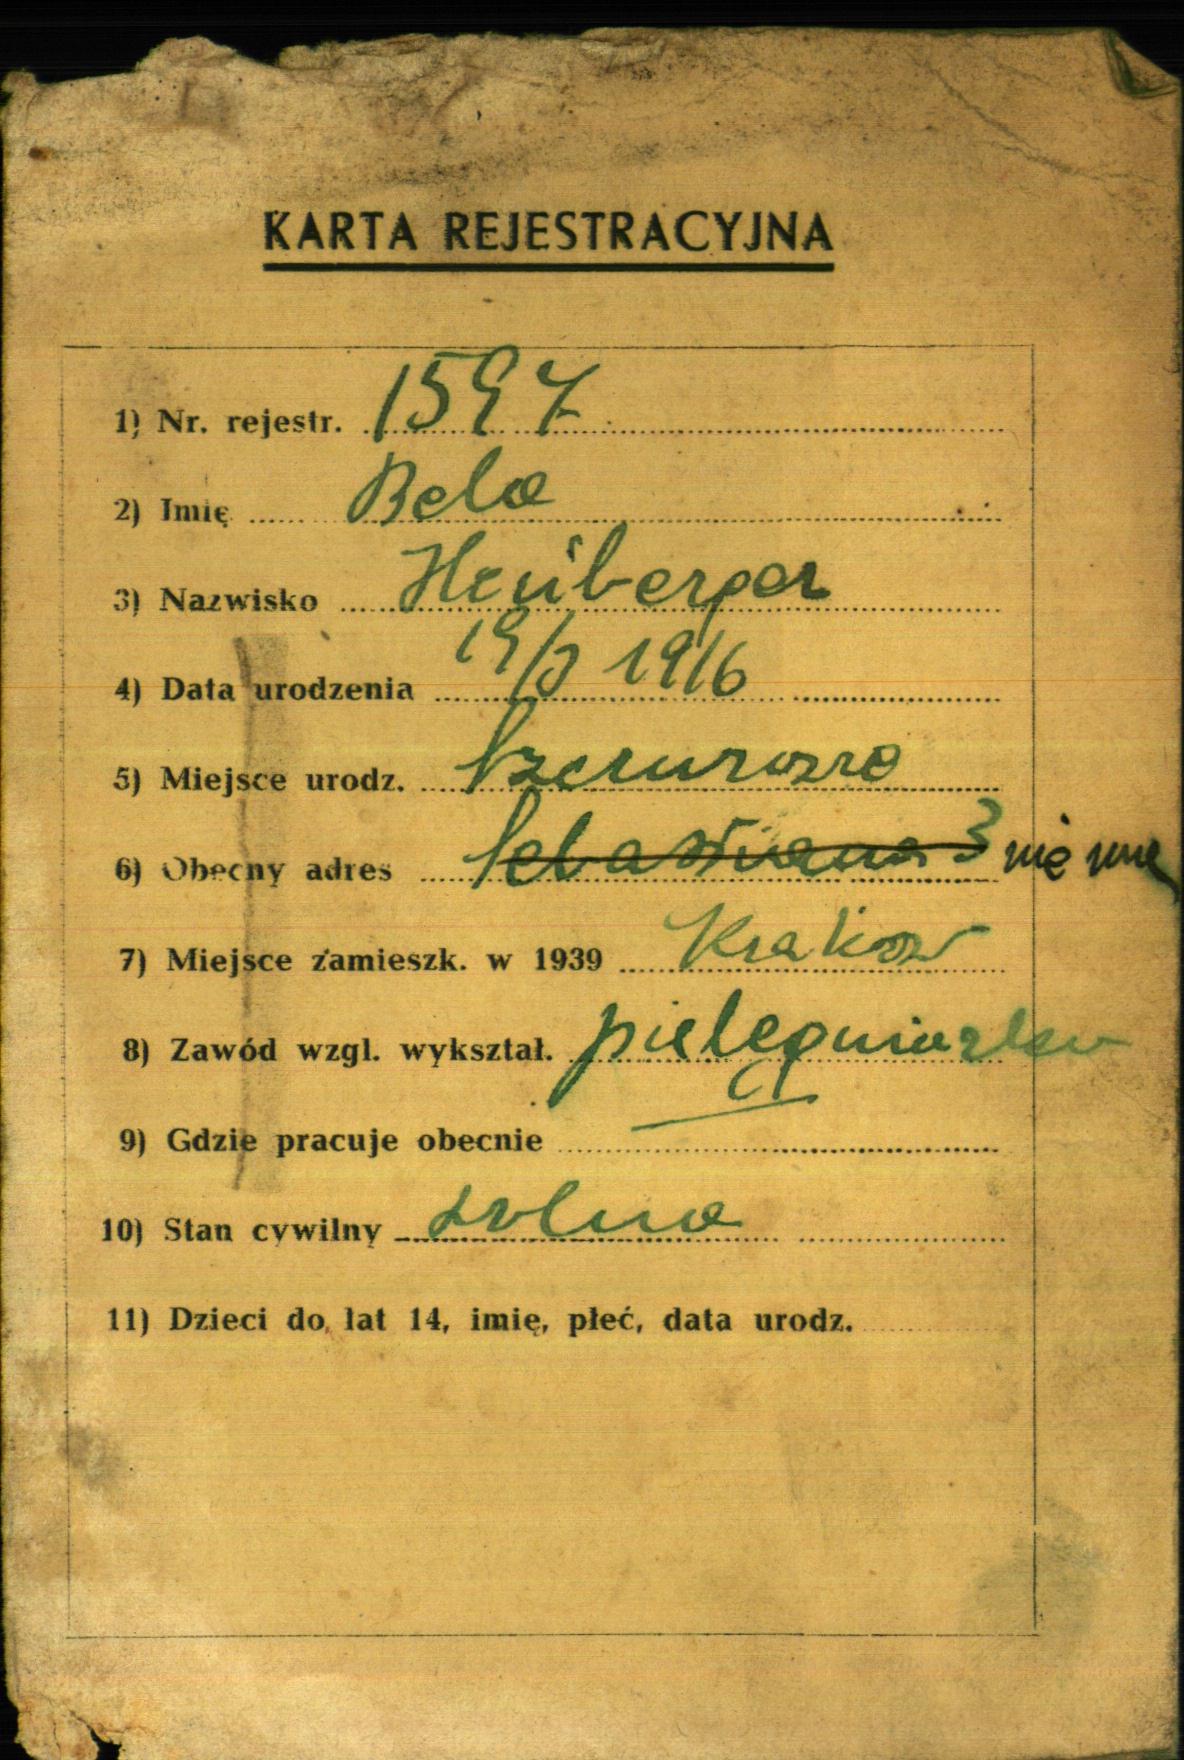 KARTA REJESTRACYJNA
1) Nr. rejestr. 1597
2) Imię Bela
3) Nazwisko Heuberger
4) Data urodzenia 19/3 1916
5) Miejsce urodz.
6) Obecny adres Sebastiana 3 nie ma
7) Miejsce zamieszk. w 1939 Kraków
8) Zawód wzgl. wykształ. pielęgniarka
9) Gdzie pracuje obecnie
10) Stan cywilny wolna
11) Dzieci do lat 14, imię, płeć, data urodz.